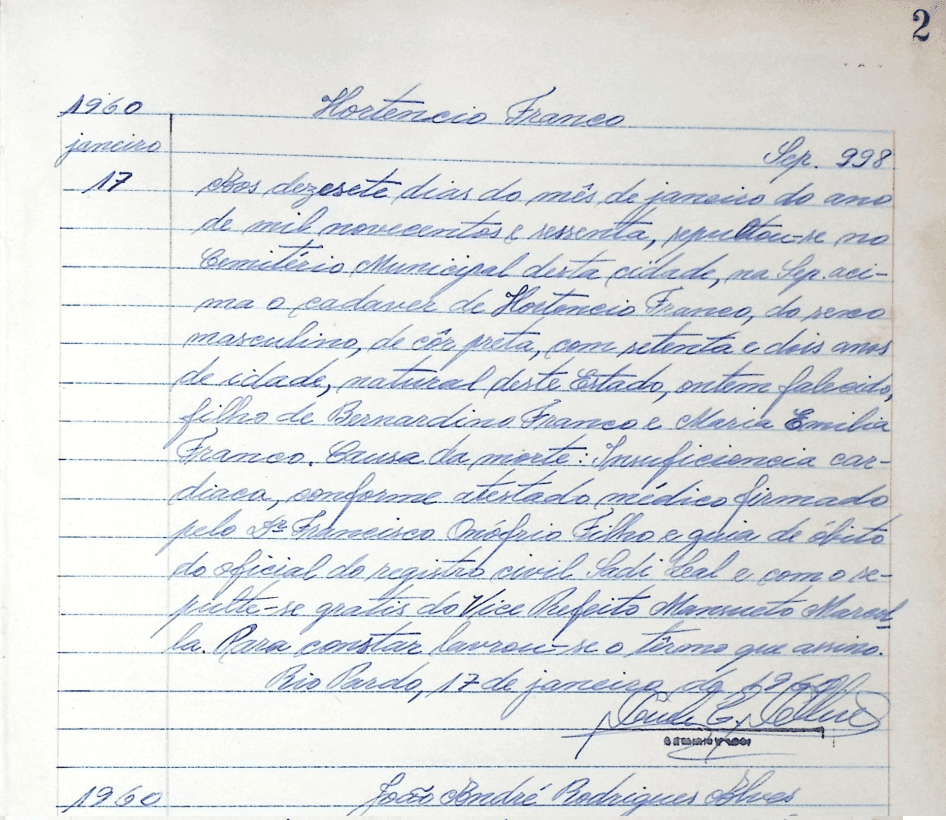 2
1960 Hortencio Franco
janeiro Sep. 998
17 Aos dezesete dias do mês de janeiro do ano
de mil novecentos e sessenta, sepultou-se no
Cemitério Municipal desta cidade, na Sep. aci-
ma o cadaver de Hortencio Franco, do sexo
masculino, de côr preta, com setenta e dois anos
de idade, natural deste Estado, ontem falecido,
filho de Bernardino Franco e Maria Emilia
Franco. Causa da morte: Insuficiencia car-
diaca, conforme atestado médico firmado
pelo Dr. Francisco Onófrio Filho e guia de óbito
do oficial do registro civil Sadi Leal e com o se-
pulte-se gratis do Vice Prefeito Mansueto
la. Para constar lavrou-se o têrmo que assino.
Rio Pardo, 17 de janeiro de 1960
1960 João André Rodrigues Alves